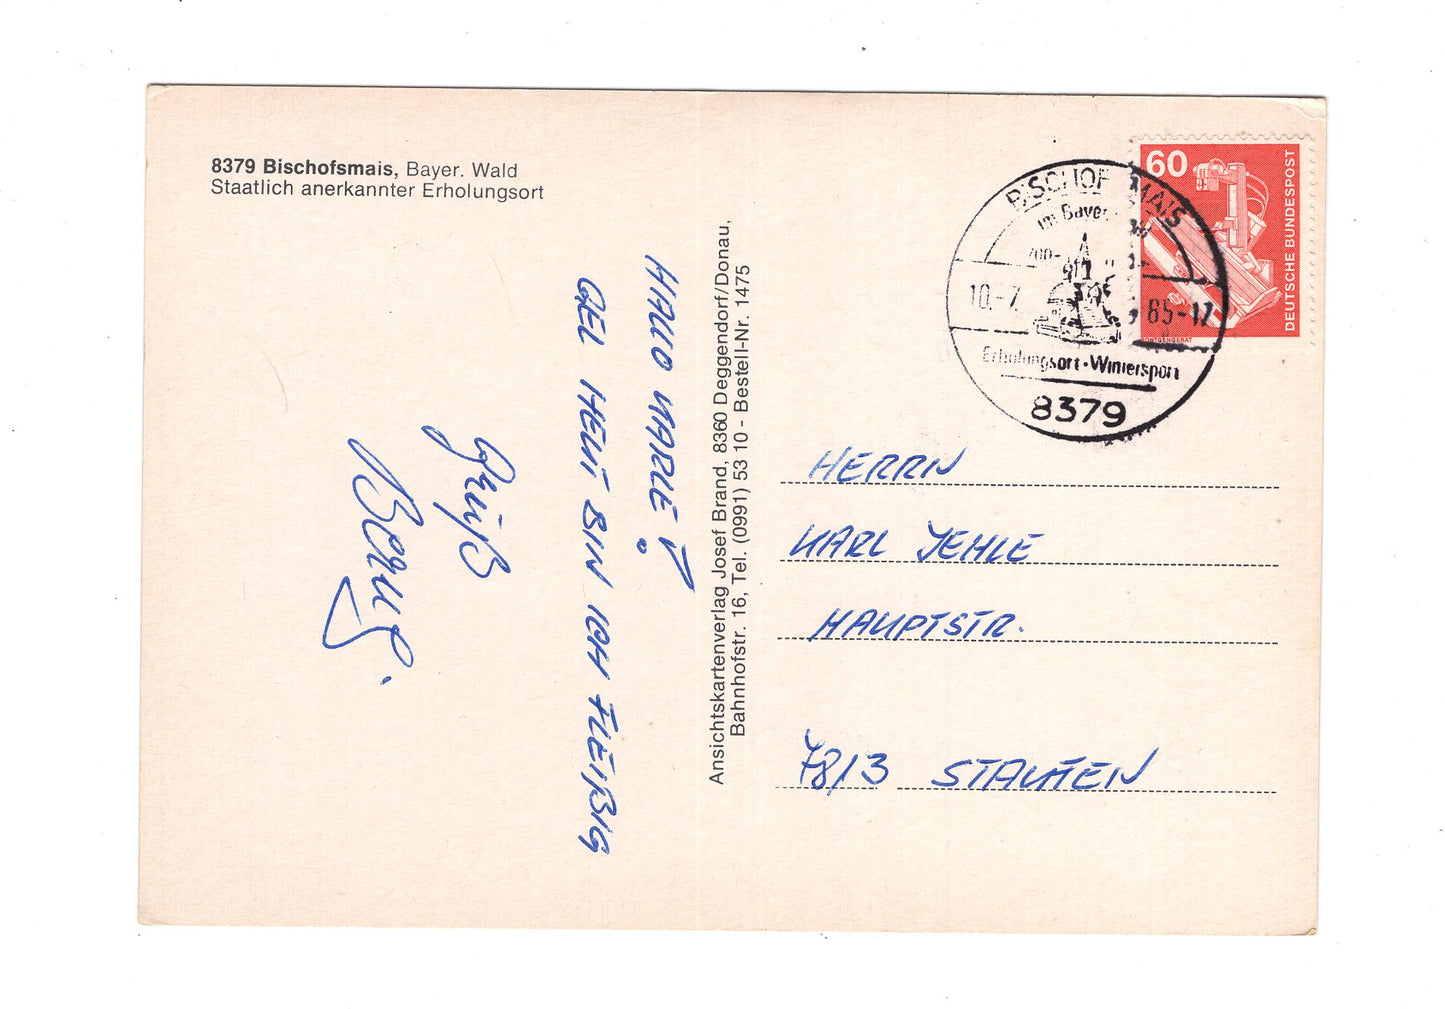 8379 Bischofsmais, Bayer. Wald
Staatlich anerkannter Erholungsort
HALLO KARLE!
GEL HEUT BIN ICH FLEIßIG
Gruß
Ansichtskartenverlag Josef Brand, 8360 Deggendorf/Donau,
Bahnhofstr. 16, Tel. (0991) 53 10 - Bestell-Nr. 1475
60
DEUTSCHE BUNDESPOST
RÖNTGENGERÄT
BISCHOFSMAIS
im Bayer.
10.-7. 85-17
Erholungsort·Wintersport
8379
HERRN
KARL JEHLE
HAUPTSTR.
7813 STAUFEN